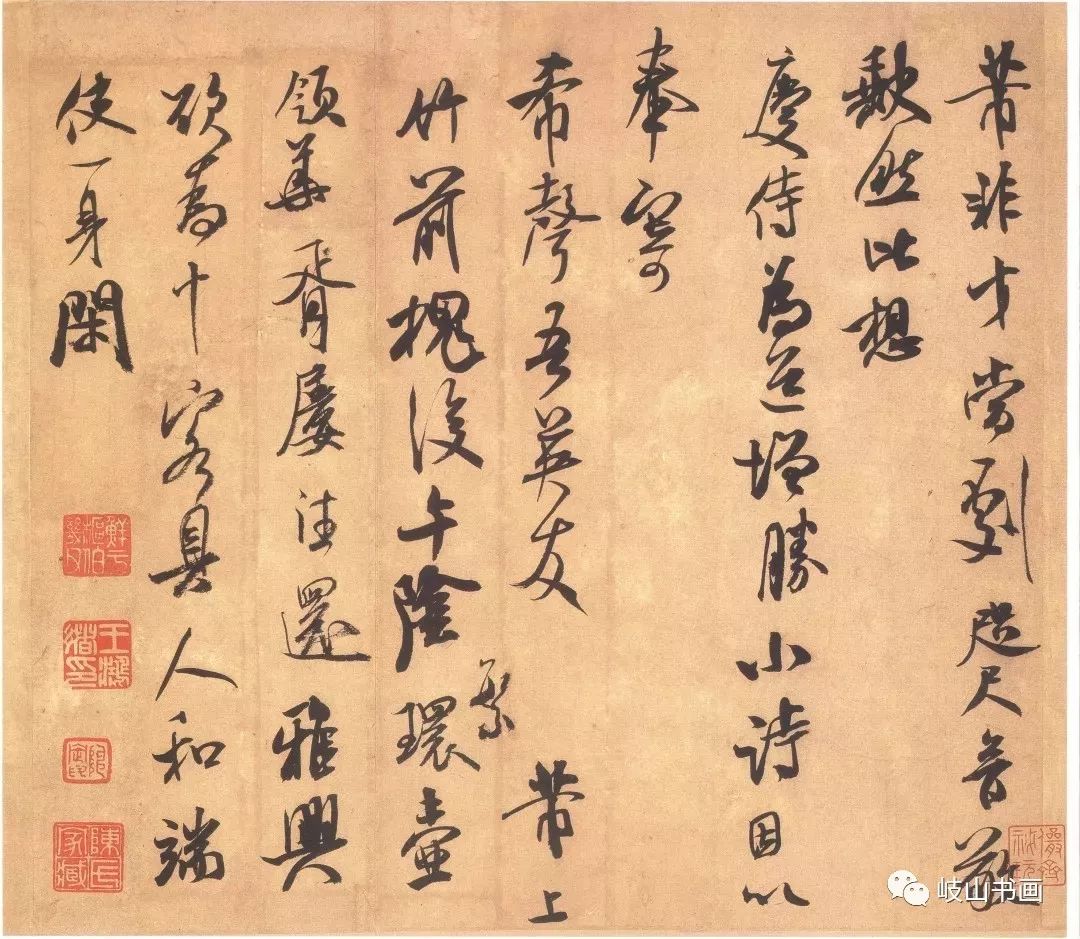 芾非才當劇咫尺音敬
缺然比想
慶侍為道增勝小詩因以
奉寄
希聲吾英友 芾上
繁
竹前槐後午陰環壺
領華胥屢往還雅興
欲為十客具人和端
使一身閑
鮮于樞伯幾父
王鴻緒印
陳氏家藏
岐山书画